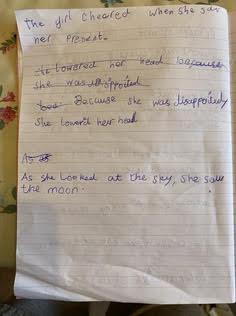 the girl cheared when she saw
her present.
She lowered her head because
she was disappointed
Because she was disappointed,
She lowerd her head
As as
As she looked at the sky, she saw
the moon.